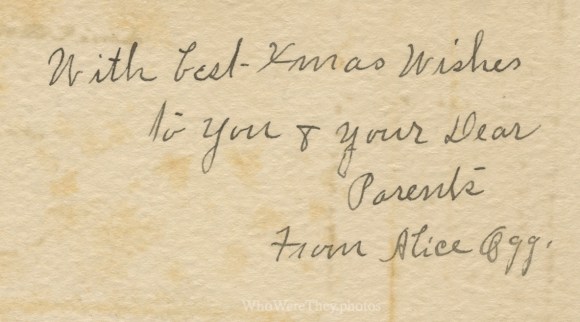 With best-Xmas Wishes
to You & your Dear
Parents
From Alice Ogg.
WhoWereThey.photos